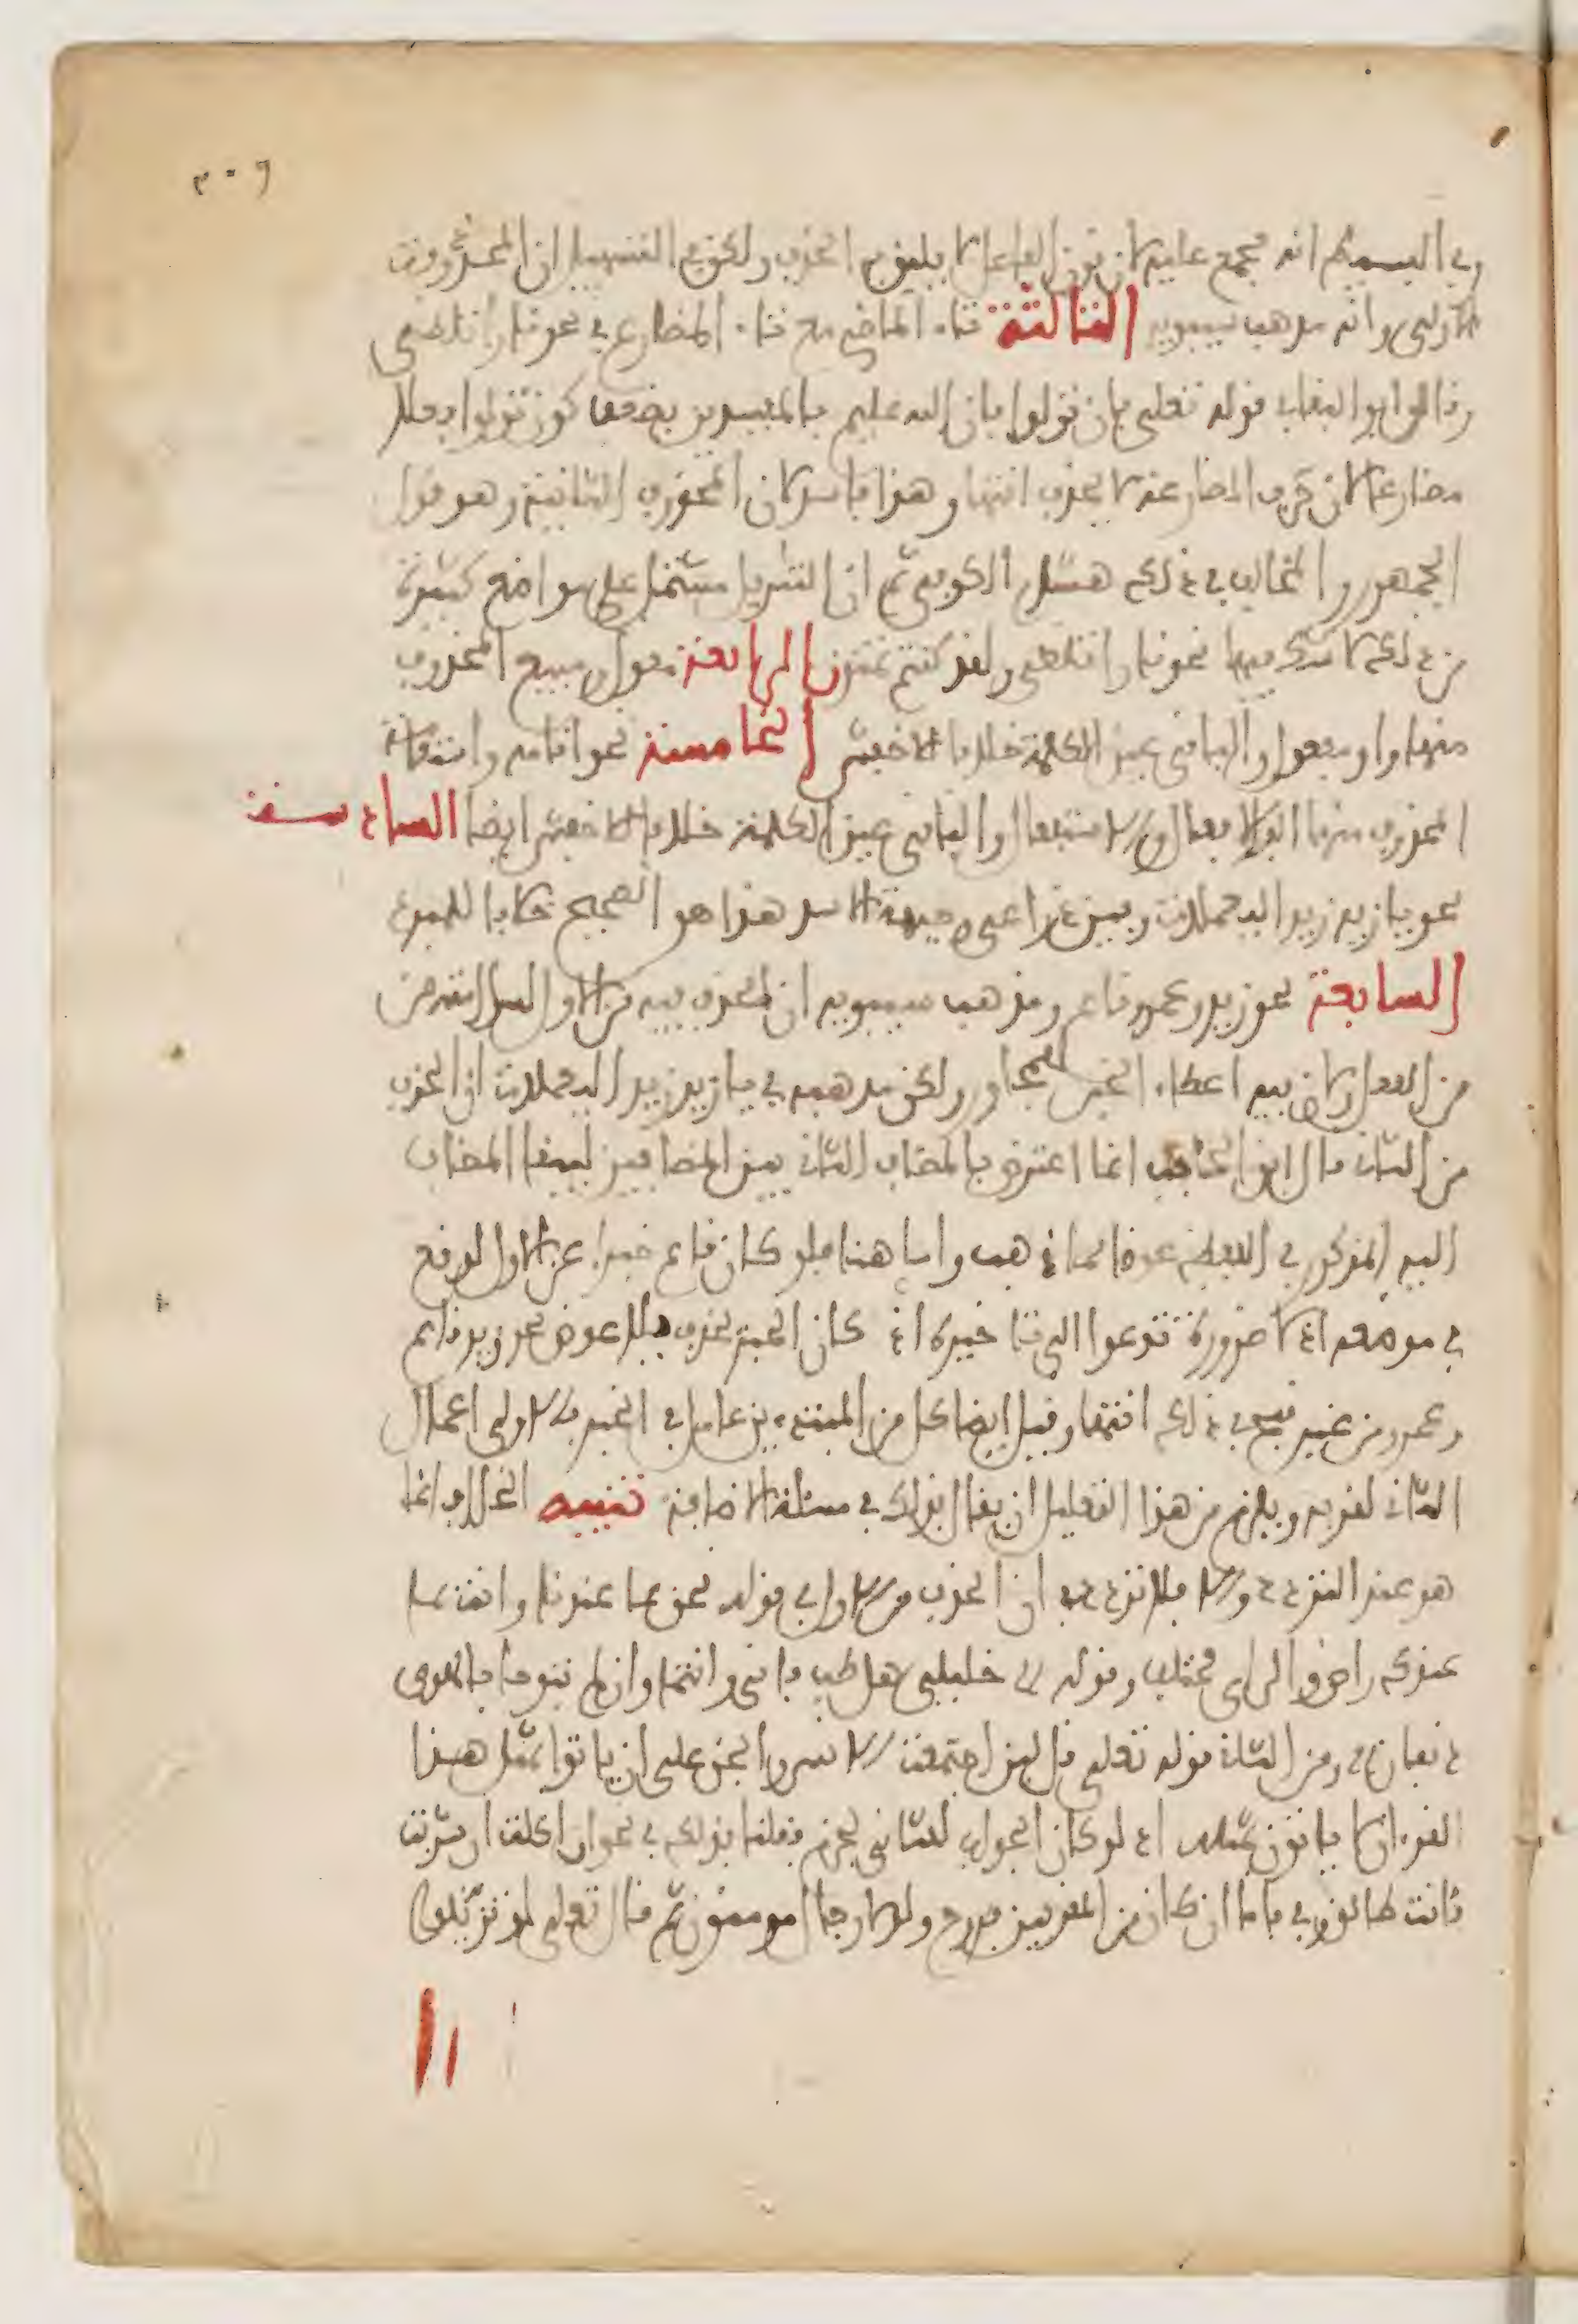 ٣٠٩
وفي البسيط انه مجمع عليه لان نون الفاعل لا يليق بها الحذف ولكن في التسهيل ان المحذوفة
الاولى وانه مذهب سيبويه الثالثة تاء الماضي مع تاء المضارع في نحو نارا تلظى
وقال ابو البقاء في قوله تعالى فان تولوا فان الله عليم بالمفسدين يضعف كون تولوا فعلا
مضارعا لان حرف المضارعة لا يحذف انتهى وهذا فاسد لان المحذوف الثانية وهو قول
الجمهور والمخالف في ذلك هشام الكوفي ثم ان التنزيل مشتمل على مواضع كثيرة
من ذلك لا شك فيها نحو نارا تلظى ولقد كنتم تمنون الرابعة مقول ومبيع المحذوف
منهما واو مفعول والباقي عين الكلمة خلافا للاخفش الخامسة نحو اقامة واستقامة
المحذوف منهما الف الافعال والاستفعال والباقي عين الكلمة خلافا للاخفش ايضا السادسة
نحو يا زيد زيد اليعملات وبين ذراعي وجبهة الاسد هذا هو الصحيح خلافا للمبرد
السابعة نحو زيد وعمرو قائم ومذهب سيبويه ان الحذف فيه من الاول لسلامته من
من الفصل ولان فيه اعطاء الخبر للمجاور ولكن مذهبه في يا زيد زيد اليعملات ان الحذف
من الثاني قال ابن الحاجب انما اعترض بالمضاف الثاني بين المتضايفين ليبقى المضاف
اليه المذكور في اللفظ عوضا مما ذهب واما هنا فلو كان قائم خبرا عن الاول لوقع
في موضعه اذ لا ضرورة تدعوا الى تاخيره اذ كان الخبر يحذف بلا عوض نحو زيد قائم
وعمرو من غير قبح في ذلك انتهى وقيل ايضا كل من المبتدءين عامل في الخبر فالاولى اعمال
الثاني لقربه ويلزم من هذا التعليل ان يقال بذلك في مسئلة الاضافة تنبيه الخلاف انما
هو عند التردد والا فلا تردد في ان الحذف من الاول في قوله نحن بما عندنا وانت بما
عندك راض والراي مختلف وقوله خليلي هل طب فاني وانتما وان لم تبوحا بالهوى
دنفان ومن الثاني قوله تعالى قل لئن اجتمعت الانس والجن على ان ياتوا بمثل هذا
القرءان لا ياتون بمثله اذ لو كان الجواب للثاني لجزم فقلنا بذلك في نحو ان اكلت ان شربت
فانت طالق وفي فاما ان كان من المقربين فروح ولولا رجال مومنون ثم قال تعالى لو تزيلوا